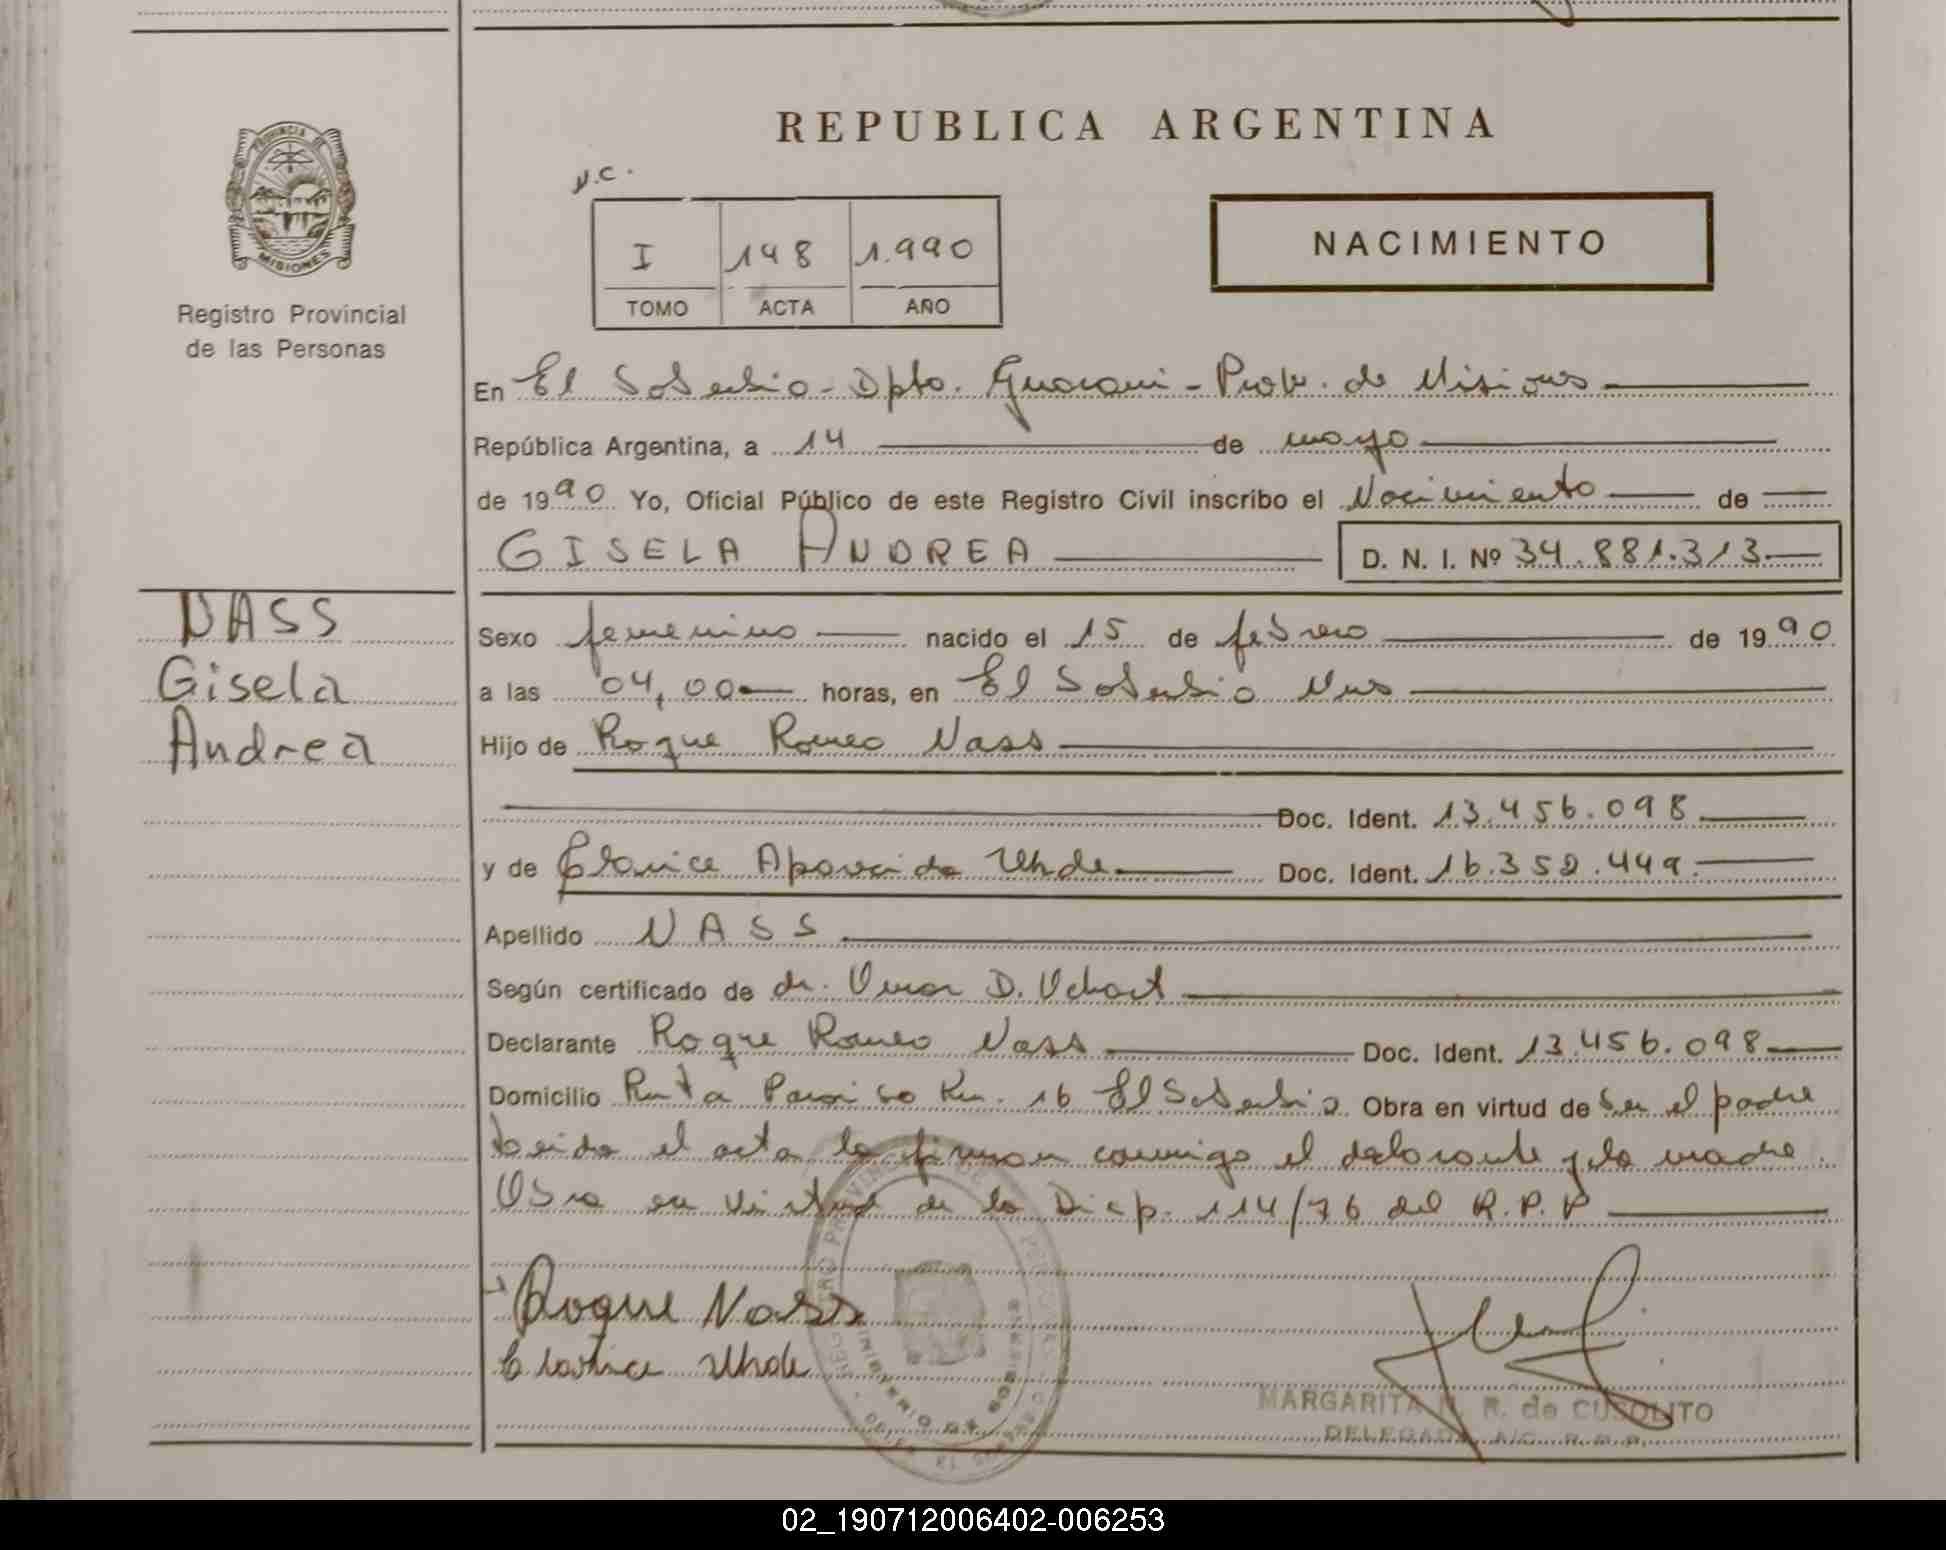 REPUBLICA ARGENTINA
PROVINCIA DE
MISIONES
Registro Provincial
de las Personas
V.C.
I 148 1.990
TOMO ACTA AÑO
NACIMIENTO
En El Soberbio - Dpto. Guarani - Prov. de Misiones
República Argentina, a 14 de mayo
de 1990 Yo, Oficial Público de este Registro Civil inscribo el Nacimiento de
GISELA ANDREA D. N. I. Nº 34.881.313
NASS
Gisela
Andrea
Sexo femenino nacido el 15 de febrero de 1990
a las 04,00 horas, en El Soberbio Mnes
Hijo de Roque Romeo Nass
Doc. Ident. 13.456.098
y de Clarice Aparecida Uhde Doc. Ident. 16.352.449.
Apellido NASS
Según certificado de dr. Omar D.
Declarante Roque Romeo Nass Doc. Ident. 13.456.098
Domicilio Ruta Paraiso Km. 16 El Soberbio Obra en virtud de Ser el padre
Leida el acta la firman conmigo el declarante y la madre.
Obra en virtud de la Disp. 114/76 del R.P.P
Roque Nass
Clarice Uhde
MINISTERIO DE GOBIERNO
MARGARITA R. de CUSOLITO
DELEGADA A/C. R.P.P.
02_190712006402-006253